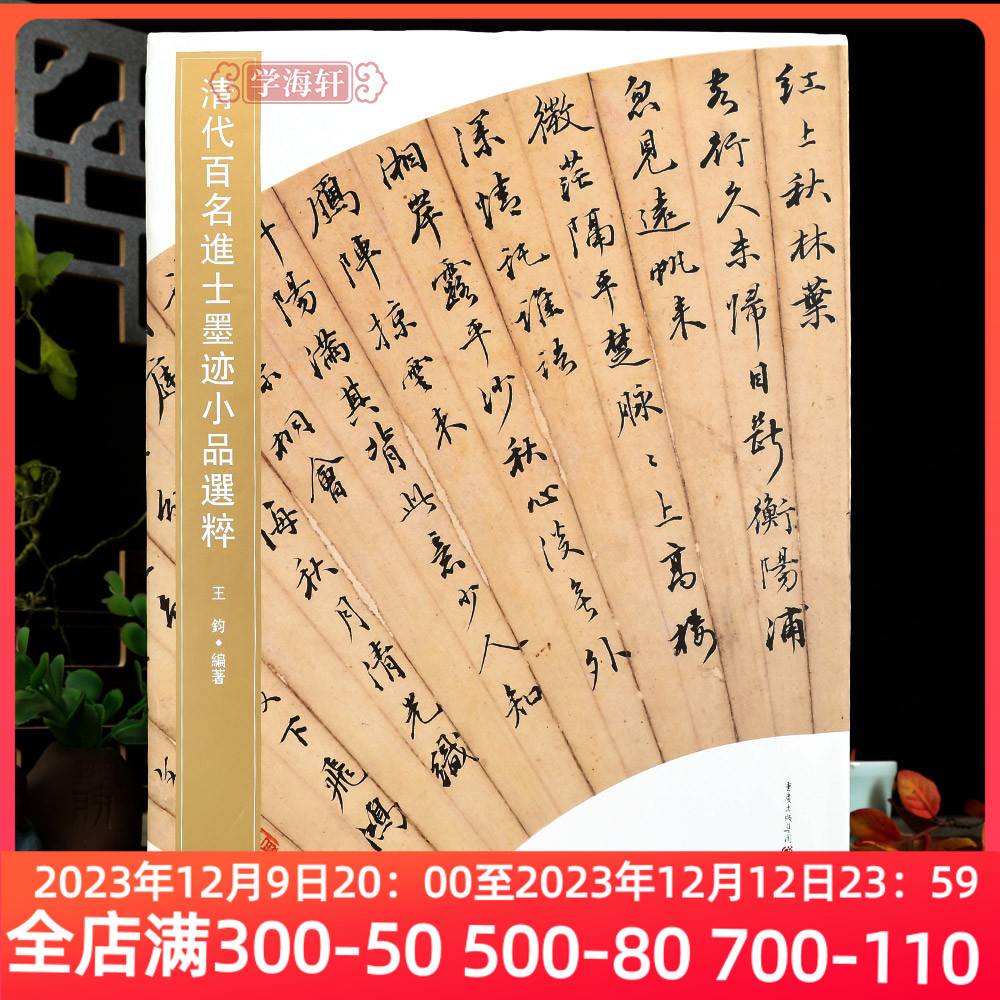 学海轩
清代百名進士墨迹小品選粹
王鈞◆編著
红上秋林葉
客行久未歸目斷衡陽浦
忽見遠帆來
微茫隔平楚脉〻上高樓
深情託誰語
湘岸露平沙秋心淡無外
鴈陣掠雲来
陽滿其背此意少人知
桐會
海秋月清光織
下飛鴻
重慶出版集團
2023年12月9日20：00至2023年12月12日23：59
全店满300-50 500-80 700-110